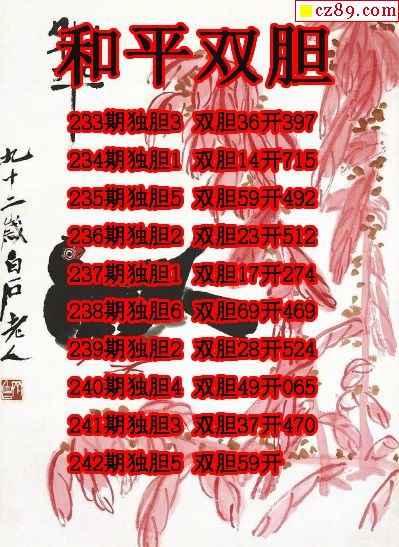 cz89.com
和平双胆
233期独胆3 双胆36开397
234期独胆1 双胆14开715
235期独胆5 双胆59开492
236期独胆2 双胆23开512
237期独胆1 双胆17开274
238期独胆6 双胆69开469
239期独胆2 双胆28开524
240期独胆4 双胆49开065
241期独胆3 双胆37开470
242期独胆5 双胆59开
九十二歲白石老人